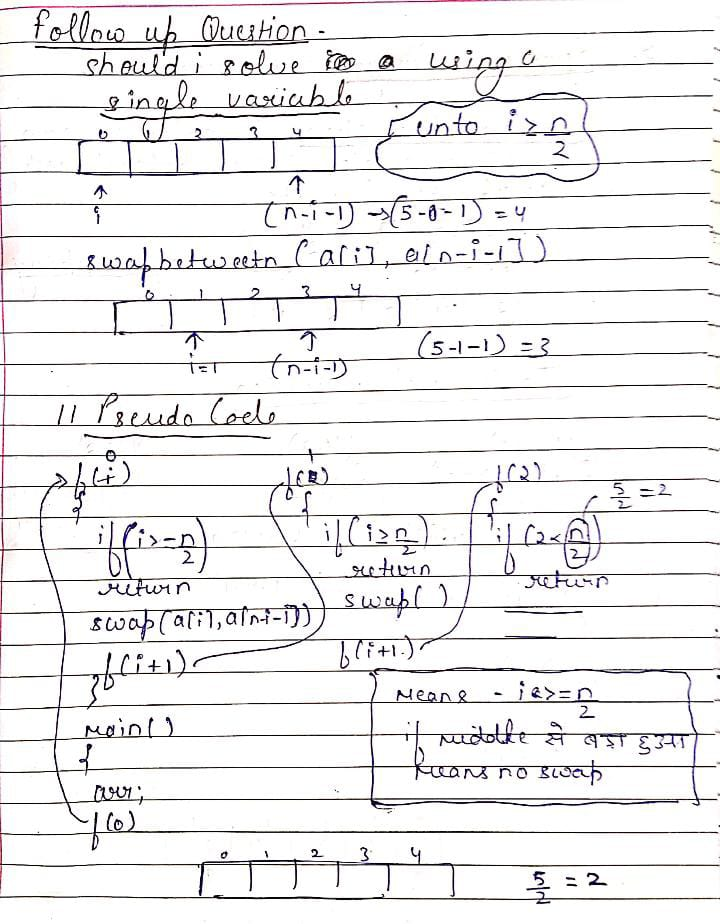 follow up Question -
should i solve a using a
single variable
0 1 2 3 4
unto i ≥ n/2
↑ ↑
i (n-i-1) → (5-0-1) = 4
swap betweetn (a[i], a[n-i-1])
0 1 2 3 4
↑ ↑ (5-1-1) = 3
i=1 (n-i-1)
// Pseudo Code
0
f(i)
{
if (i >= n/2)
return
swap(a[i], a[n-i-1])
f(i+1)
}
main()
{
arr;
f(0)
1
f( )
{
if (i ≥ n/2)
return
swap( )
f(i+1)
f(2)
{ 5/2 = 2
if (2 < n/2)
return
Means - i >= n/2
if middle से बड़ा हुआ
Means no swap
0 1 2 3 4
5/2 = 2